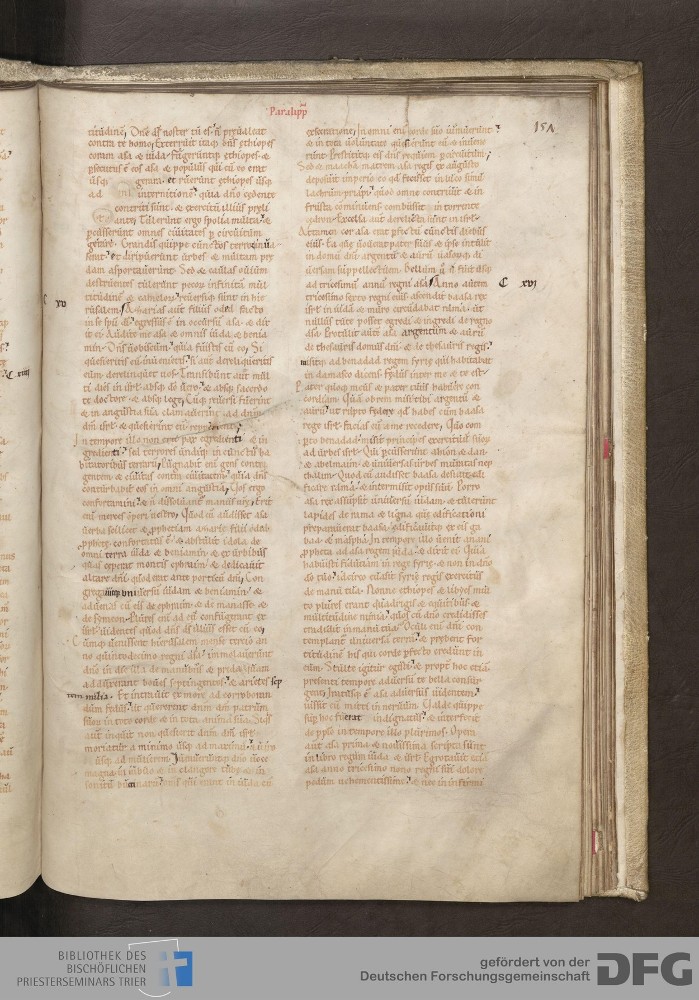 Paralipp
151
titudinē. Dn̄e ds̄ noster tu es. ñ prevaleat
contra te homo. Exterruit itaq; dn̄s ethiopes
coram asa & iuda. fugeruntq; ethiopes. &
psecutus ē eos asa & populus qui cū eo erat
usq; geraram. et ruerunt ethiopes usq;
ad internitionē. quia dn̄o cedente
contriti sunt. & exercitu illius preli
ante. Tulerunt ergo spolia multa. &
pcusserunt omnes civitates p circuitum
gerare. Grandis quippe cunctos terror inva
serat. et diripuerunt urbes. & multam pre
dam asportaverunt. Sed & caulas ovium
destruentes tulerunt pecorū infinitū mul
titudinē & camelorū. reversiq; sunt in hie
rusalem. Azarias aut filius oded facto
C xv
in se spū di. egressus ē in occursū asa. & dix
it ei. Audite me asa & omnis iuda & benia
min. Dn̄s vobiscum. quia fuistis cū eo. Si
quesieritis eū invenietis. si aut dereliqueritis
eum. derelinquet vos. Transibunt aut mul
ti dies in isrl absq; dō vero. & absq; sacerdo
te doctore. & absq; lege. Cūq; reversi fuerint
C xiiii
& in angustia sua clamaverint ad dn̄m
dm̄ isrl. & quesierint eū. reperient eū.
In tempore illo non erit pax egredienti & in
gredienti. sed terrores undiq; in cunctis ha
bitatoribus terrarū. Pugnabit enī gens contra
gentem. & civitas contra civitatem. quia dn̄s
conturbabit eos in omni angustia. Vos ergo
confortamini. & ñ dissolvant manus vre. Erit
enī merces operi vestro. Quod cū audisset asa
verba scilicet & pphetiam azarie filii oded
pphete. confortatus ē. & abstulit idola de
omni terra iuda & beniamin. & ex urbibus
quas ceperat montis ephraim. & dedicavit
altare dn̄i. quod erat ante porticū dn̄i. Con
gregavitq; universū iudam & beniamin. &
advenas cū eis de ephraim. & de manasse. &
de symeon. Plures enī ad eū confugerant ex
isrl. videntes quod dn̄s ds̄ illius esset cū eo.
Cumq; venissent hierusalem mense tercio an
no quintodecimo regni asa. immolaverunt
dn̄o in die illa de manubiis & preda quam
adduxerant boves septingentos. & arietes sep
tem milia. Et intravit ex more ad corrobornan
dum fedus. ut quererent dn̄m dm̄ patrum
suorū in toto corde & in tota anima sua. Siqs
aut inquit non quesierit dn̄m dm̄ isrl
moriatur a minimo usq; ad maximū. a viro
usq; ad mulierem. Iuraveruntq; dn̄o voce
magna in iubilo & in clangore tube. & in
sonitu buccinarū. omnes qui erant in iuda cū
execratione. In omni enī corde suo iuraverunt.
& in tota voluntate quesierunt eū. & invene
runt. Prestititq; eis dn̄s requiem p circuitum.
Sed & maacha matrem asa regis ex augusto
deposuit imperio. eo qd fecisset in luco simu
lachrum priapi. quod omne contrivit. & in
frusta comminuens combussit in torrente
cedron. Excelsa aut derelicta sunt in isrl.
Attamen cor asa erat pfectū cunctis diebus
eius. Ea que voverat pater suus & ipse intulit
in domū dn̄i. argentū & aurū vasorūq; di
versam suppellectilem. Bellum ū ñ fuit usq;
ad tricesimū annū regni asa. Anno autem
C xvi
tricesimo sexto regni eius. ascendit baasa rex
isrl in iudam. & muro circūdabat rama. ut
nullus tute posset egredi & ingredi de regno
asa. Protulit aut asa argentum & aurū
de thesauris domus dn̄i. & de thesauris regis.
misitq; ad benadad regem syrie qui habitabat
in damasco dicens. Fedus inter me & te est.
Pater quoq; meus & pater tuus habuere con
cordiam. Quā obrem misi tibi argentū &
aurū. ut rupto federe qd habes cum baasa
rege isrl. facias eū a me recedere. Quo com
pto benadad. misit principes exercituū suorū
ad urbes isrl. Qui pcusserunt ahion & dan
& abelmaim. & universas urbes muratas nep
thalim. Quod cū audisset baasa. desiit edi
ficare rama. & intermisit opus suū. Porro
asa rex assūpsit universū iudam. & tulerunt
lapides de rama & ligna que edificationi
preparaverat baasa. edificavitq; ex eis ga
baa & maspha. In tempore illo venit anani
ppheta ad asa regem iuda. & dixit ei. Quia
habuisti fiduciam in rege syrie. & non in dn̄o
dō tuo. idcirco evasit syrie regis exercitus
de manu tua. Nonne ethiopes & libyes mul
to plures erant quadrigis & equitibus. &
multitudine nimia. quos cū dn̄o credidisses
tradidit in manu tua. Oculi enī dn̄i con
templant universā terrā. & prebent for
titudinē his qui corde pfecto credunt in
eum. Stulte igitur egisti. & propt hoc etiā
presenti tempore adversū te bella consur
gent. Iratusq; ē asa adversus videntem.
iussit eū mitti in nervum. Valde quippe
sup hoc fuerat indignatus. & interfecit
de pplo in tempore illo plurimos. Opera
aut asa prima & novissima scripta sunt
in libro regum iuda & isrl. Egrotavit etiā
asa anno tricesimo nono regni sui dolore
pedum vehementissimo. & nec in infirmi
BIBLIOTHEK DES
BISCHÖFLICHEN
PRIESTERSEMINARS TRIER
gefördert von der
Deutschen Forschungsgemeinschaft
DFG